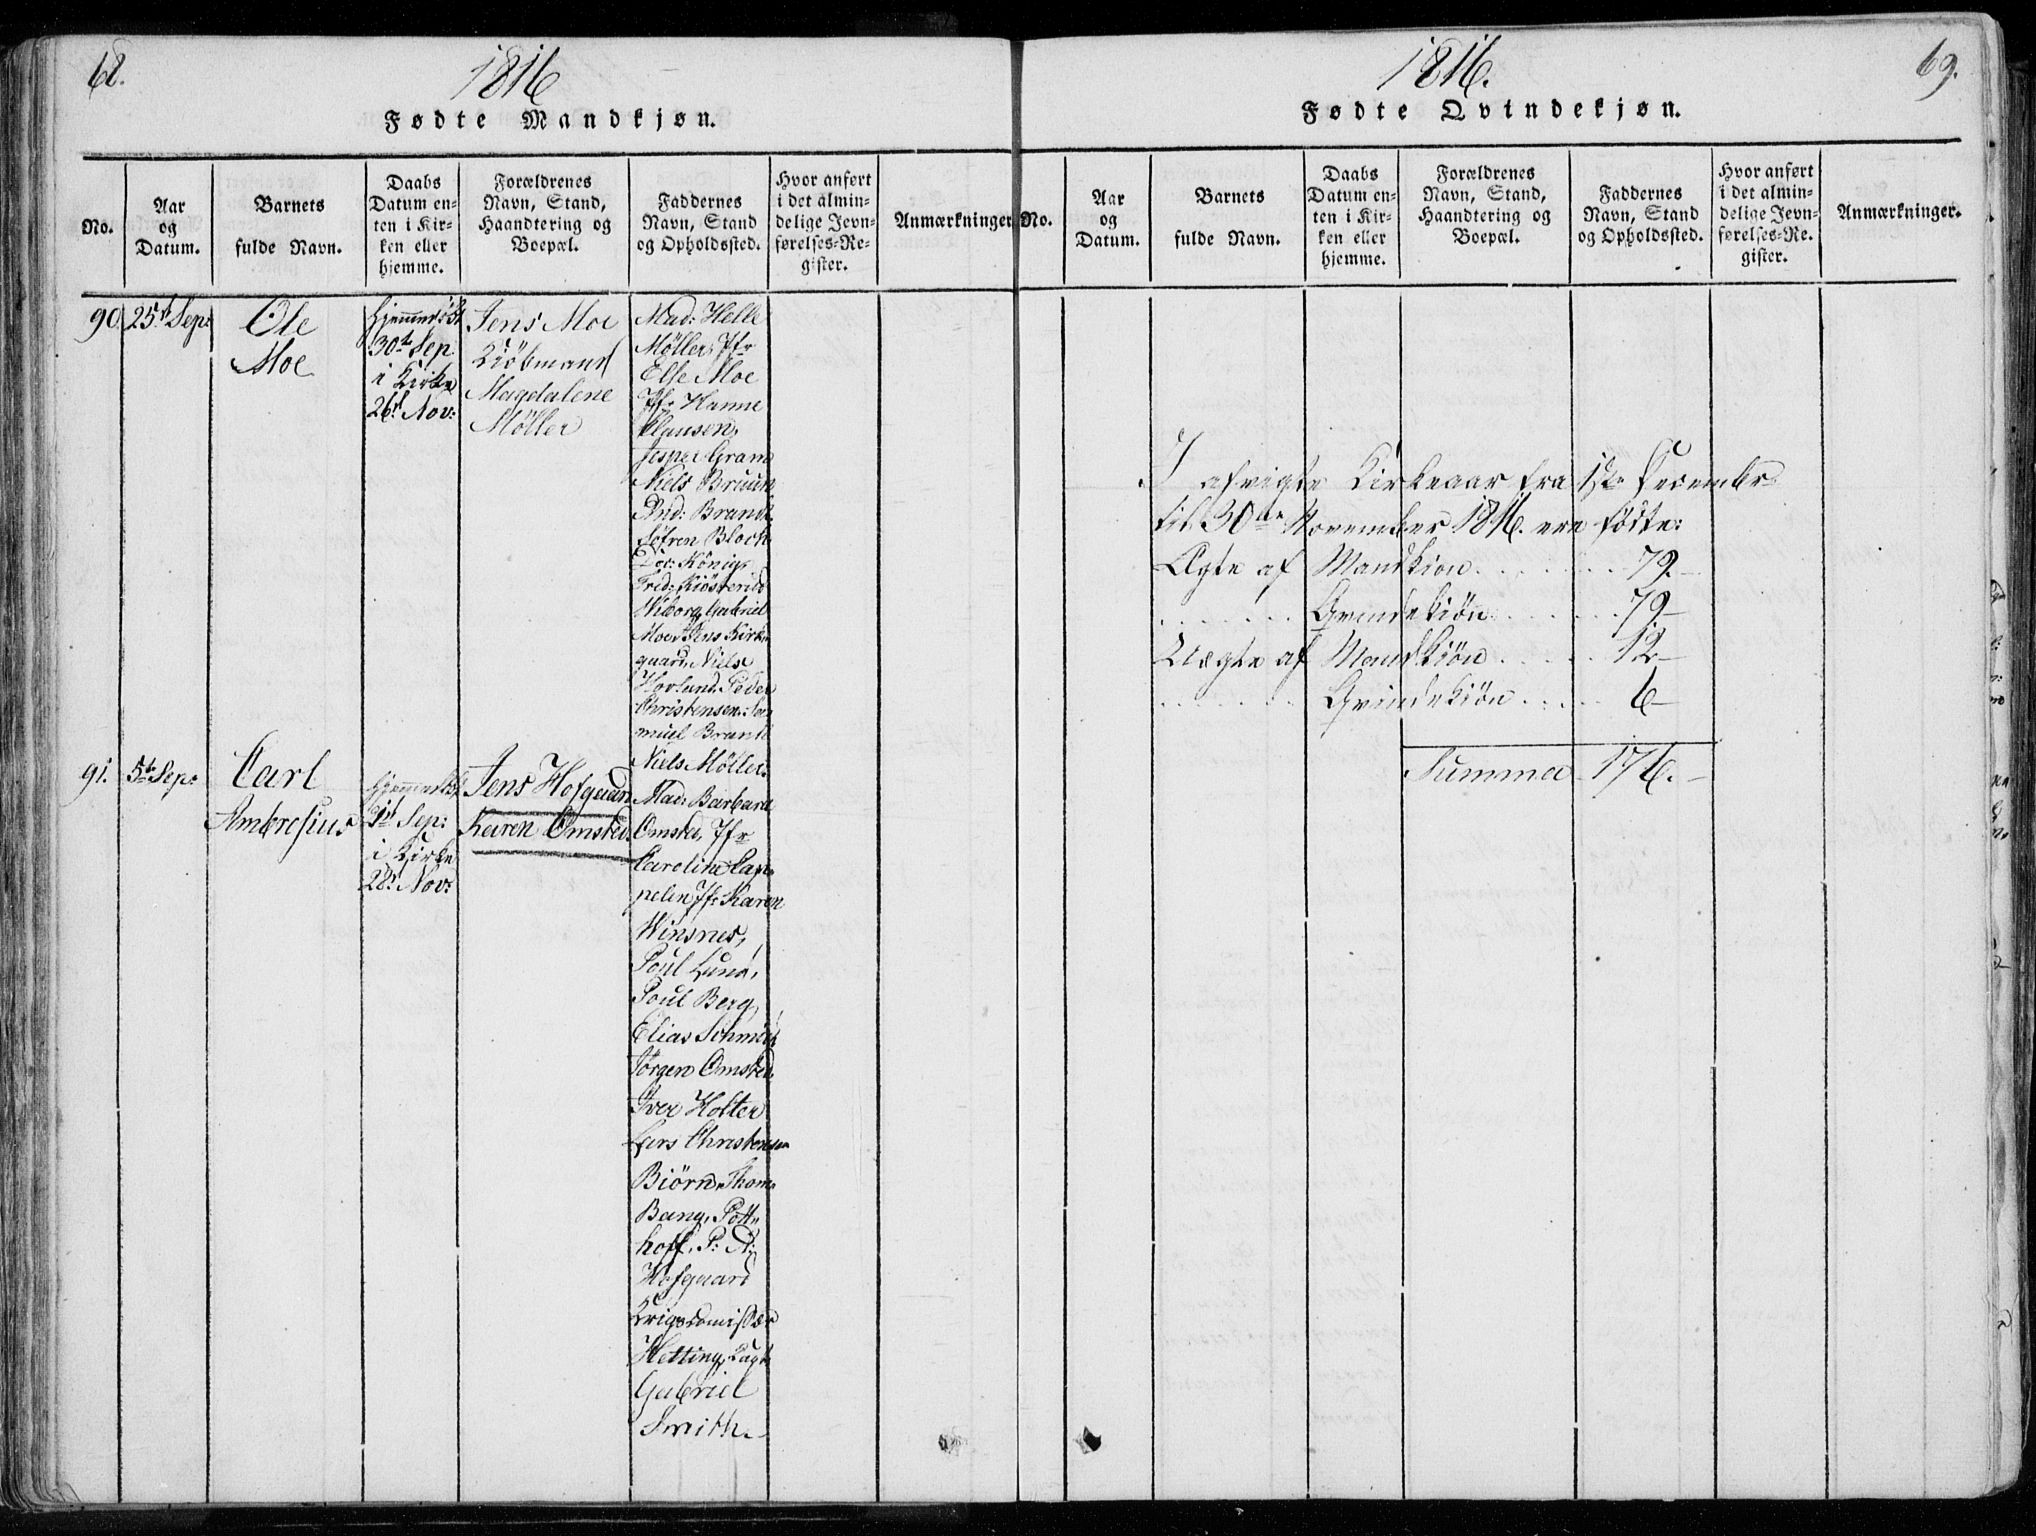 68.
1816
Fødte Mandkjøn.
No.
Aar
og
Datum.
Barnets
fulde Navn.
Daabs
Datum en-
ten i Kir-
ken eller
hjemme.
Forældrenes
Navn, Stand,
Haandtering og
Boepæl.
Faddernes
Navn, Stand
og Opholdssted.
Hvor anført
i det almin-
delige Jevn-
førelses-Re-
gister.
Anmærkninger.
90.
25t Sep:
Ole
Moe
Hjemmedøbt
30t Sep
i Kirke
26t Nov:
Jens Moe
Kiöbmand
Magdalene
Møller
Mad: Helle
Møller, Jfr
Else Moe
Jfr Hanne
Clausen,
Jesper Gram
Niels Bruun
And: Brandt
Søfren Bloch
König,
Fred: Kiösterud
Wiborg, Gabriel
Moe, Jens Kirke
gaard, Niels
Hovlund, Peder
Christensen, Sa
muel Brandt
Niels Møller.
91.
5te Sep:
Carl
Ambrosius
Hjemmedøbt
21t Sep:
i Kirke
28t Nov:
Jens Hofgaard
Karen Omsted.
Mad: Barbara
Omsted, Jfr
Caroline Cap
pelen, Jfr Karen
Winsnes,
Poul Lund,
Poul Berg,
Elias Schmidt
Jörgen Omsted.
Iver Holter
Lars Christensen
Biörn, Thom
Bang, Pott
hoff, P: A:
Hofgaard
Krigscomissær
Hetting, Capt
Gabriel
Smith.
69.
1816.
Fødte Qvindekjøn.
No.
Aar
og
Datum.
Barnets
fulde Navn.
Daabs
Datum en-
ten i Kir-
ken eller
hjemme.
Forældrenes
Navn, Stand,
Haandtering og
Boepæl.
Faddernes
Navn, Stand
og Opholdssted.
Hvor anført
i det almin-
delige Jevn-
førelses-Re-
gister.
Anmærkninger.
I afvigte Kirkeaar fra 1ste December
til 30te November 1816. ere fødte:
Ægte af Mandkiön . . . . . . . 79.—
. . . . . . . Qvindekiön . . . . . . 79—
Uægte af Mandkiön . . . . . 12—
. . . . . . . Qvindekiön . . . . . 6—
Summa 176.—